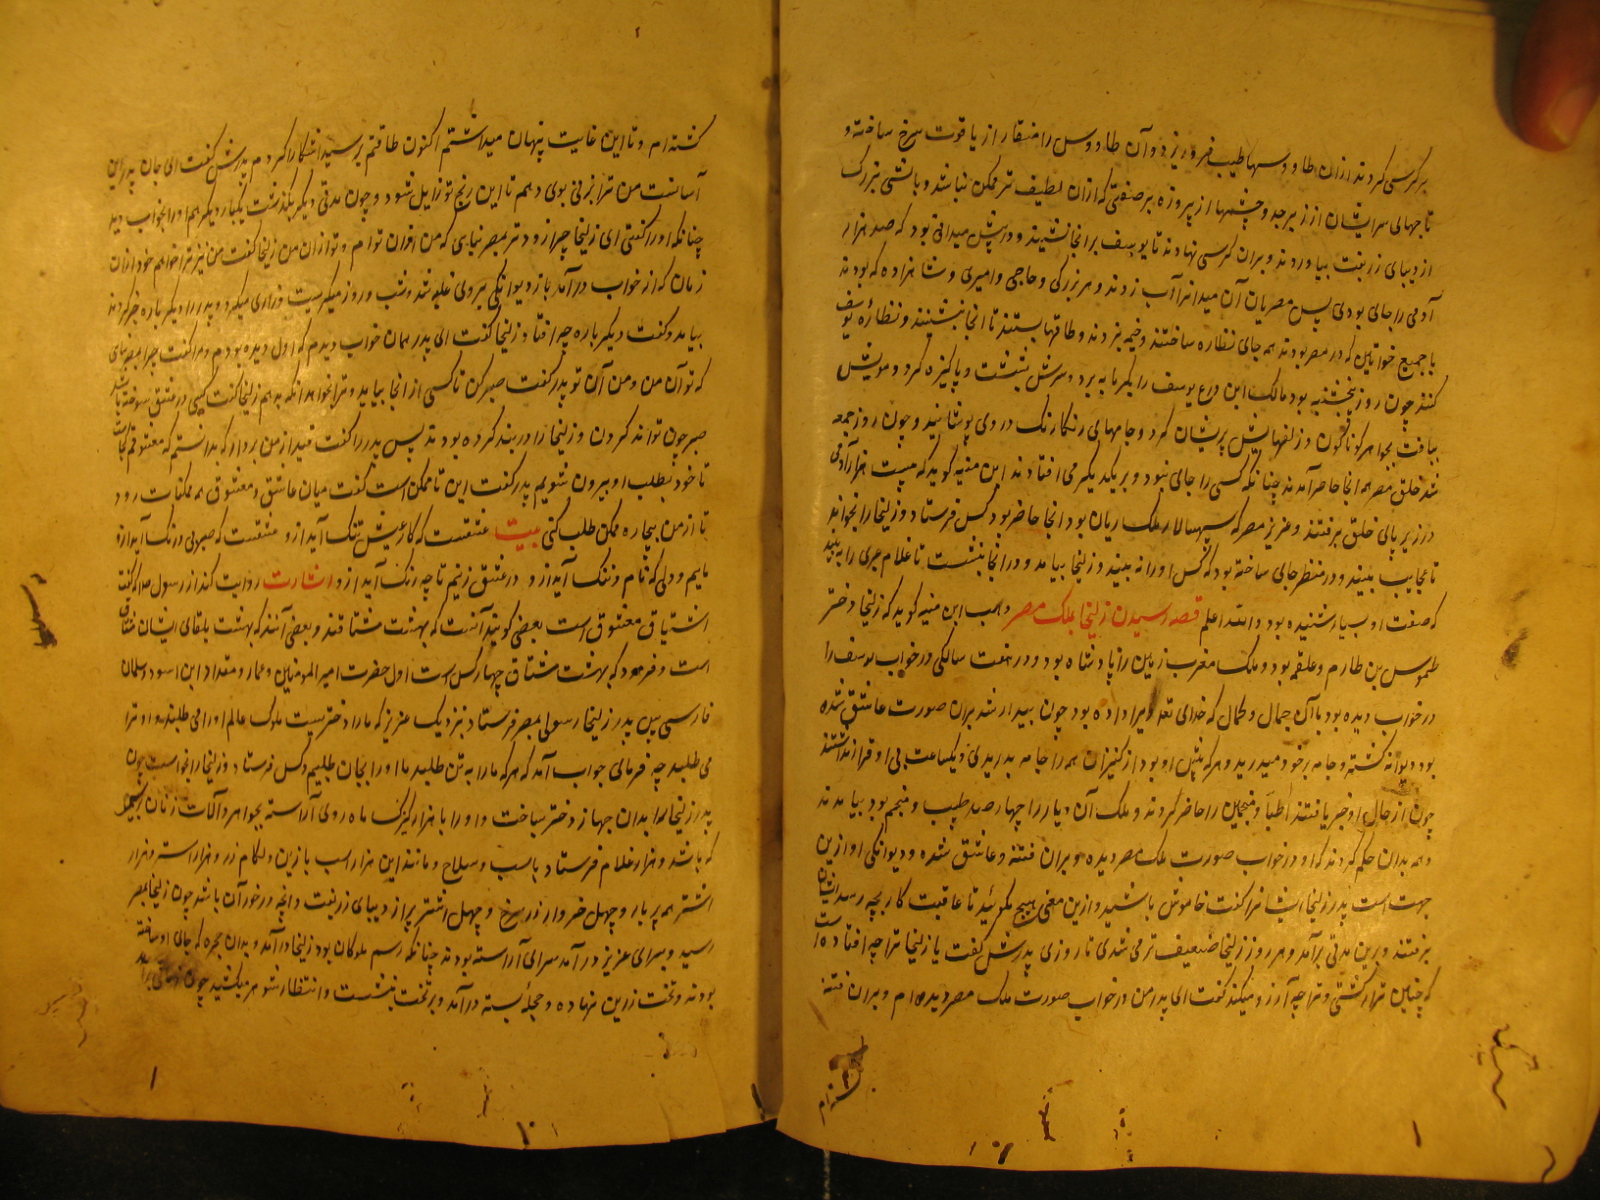 بر کرسی کردند از زان طاووسها طیب فروریزد و آن طاووس را منقار از یاقوت سرخ ساخته و
تاجهای سرایشان از زبرجد و چشمها از پیروزه بر صفتی که ازان لطیف تر ممکن نباشد و بالشتی بزرک
از دیبای زربفت بیاوردند و بران کرسی نهادند تا یوسف برانجا نشیند و در پیش میدانی بود که صد هزار
آدمی را جای بودی پس مصریان آن میدانرا آب زدند و هر بزرکی و حاجبی و امیری و شاهزاده که بودند
با جمیع خواتین که در مصر بودند همه جای نظاره ساختند و خیمه بزدند و طاقها بستند تا انجا بنشینند و نظاره یوسف
کنند چون روز پنجشنبه بود مالک ابن ذعر یوسف را بکرمابه برد و سرش بشست و پاکیزه کرد و مویش
ببافت بجواهر کوناکون و زلفهایش پریشان کرد و جامهای رنکارنک در وی پوشانید و چون روز جمعه
شد خلق مصر همه انجا حاضر آمدند چنانکه کسی را جای نبود و بر یکدیکر می افتادند ابن منبه کوید که بیست هزار آدمی
در زیر پای خلق برفتند و عزیز مصر که سپهسالار ملک ریان بود انجا حاضر بود کس فرستاد و زلیخا را بخواند
تا عجایب ببیند و در منظر جای ساخته بود که کس او را نه بیند و زلیخا بیامد و در انجا بنشست تا غلام عبری را به بیند
که صفت او بسیار شنیده بود والله اعلم قصه رسیدن زلیخا بملک مصر وهب ابن منبه کوید که زلیخا دختر
طموس بن طارم و علقمه بود و ملک مغرب زمین را پادشاه بود و در هفت سالکی در خواب یوسف را
در خواب دیده بود با آن جمال و کمال که خدای تعالی ویرا داده بود چون بیدار شد بران صورت عاشق شده
بود دیوانه کشته و جامه بر خود میدرید و هر که پیش او بود از کنیزان همه را جامه بدریدی و یکساعت بی او قرار نداشتند
چون از حال او خبر یافتند اطبا و منجمین را حاضر کردند و ملک آن دیار را چهار صد طبیب و منجم بود بیامدند
و همه بدان حکم کردند که او در خواب صورت ملک مصر دیده و بران فتنه و عاشق شده و دیوانکی او ازین
جهت است پدر زلیخا ایشانرا کفت خاموش باشید و ازین معنی هیچ مکوئید تا عاقبت کار بچه رسد ایشان
برفتند و برین مدتی برآمد و هر روز زلیخا ضعیف تر می شدی تا روزی پدرش کفت یا زلیخا ترا چه افتاده است
که چنین نزار کشتی و ترا چه آرزو میکند کفت ای پدر من در خواب صورت ملک مصر دیده ام و بران فتنه
کشته ام و تا این غایت پنهان میداشتم اکنون طاقتم برسید اشکارا کردم پدرش کفت ای جان پدر این
آسانست من ترا بزنی بوی دهم تا این رنج تو زایل شود و چون مدتی دیکر بکذشت یکبار دیکر هم او را بخواب دید
چنانکه او را کفتی ای زلیخا چرا زودتر بمصر نیایی که من ازان توام و تو ازان من زلیخا کفت من نیز ترا خواهم خود ازان
زمان که از خواب درآمد باز دیوانکی برو غلبه شد و شب و روز میکریست و زاری میکرد و پدر را دیکر باره خبر کردند
بیامد و کفت دیکر باره چه افتاد زلیخا کفت ای پدر همان خواب دیدم که اول دیده بودم و مرا کفت چرا بمصر نیایی
که تو آن من و من آن تو پدر کفت صبر کن تا کسی از انجا بیاید و ترا بخواهد انکه بدهم زلیخا کفت کسی در عشق سوخته باشد
صبر چون تواند کردن و زلیخا را در بند کرده بودند پس پدر را کفت قید از من بردار که بدانستم که معشوقم کجاست
تا خود بطلب او بیرون شویم پدر کفت این ناممکن است کفت میان عاشق و معشوق همه ممکنات رود
تا از من بیچاره ممکن طلب کنی بیت عشقست که کار شیش تنک آید ازو عشقست که صبر بی درنک آید ازو
ماییم و دلی که نام و ننک آید ازو در عشق زنیم تا چه رنک آید ازو اشارت روایت کند از رسول صلم که کفت
اشتیاق معشوق است بعضی کویند آنست که بهشت مشتاقند و بعضی آنند که بهشت بلقای ایشان مشتاق
است و فرمود که بهشت مشتاق چهار کس است اول حضرت امیر المومنین و عمار و مقداد ابن اسود و سلمان
فارسی پس پدر زلیخا رسولی بمصر فرستاد بنزدیک عزیز که ما را دختریست ملوک عالم او را می طلبند و او ترا
می طلبد چه فرمائی جواب آمد که هر که ما را به تن طلبد ما او را بجان طلبیم و کس فرستاد و زلیخا را خواست چون
پدر زلیخا بدان جهاز دختر ساخت و او را با هزار کنیزک ماه روی آراسته بجواهر و آلات زنان
که باشد و هزار غلام فرستاد با اسب و سلاح و مانند این هزار اسب با زین و لکام زر و هزار استر و هزار
اشتر همه پر بار و چهل خروار زر سرخ و چهل اشتر پر از دیبای زربفت و انچه در خور آن باشد چون زلیخا بمصر
رسید و بسرای عزیز درآمد سرای آراسته بودند چنانکه رسم ملوکان بود زلیخا درآمد و بدان حجره که جای او ساخته
بودند و تخت زرین نهاده و حجله بسته درآمد و بر تخت بنشست و انتظار شوهر میکشید چون